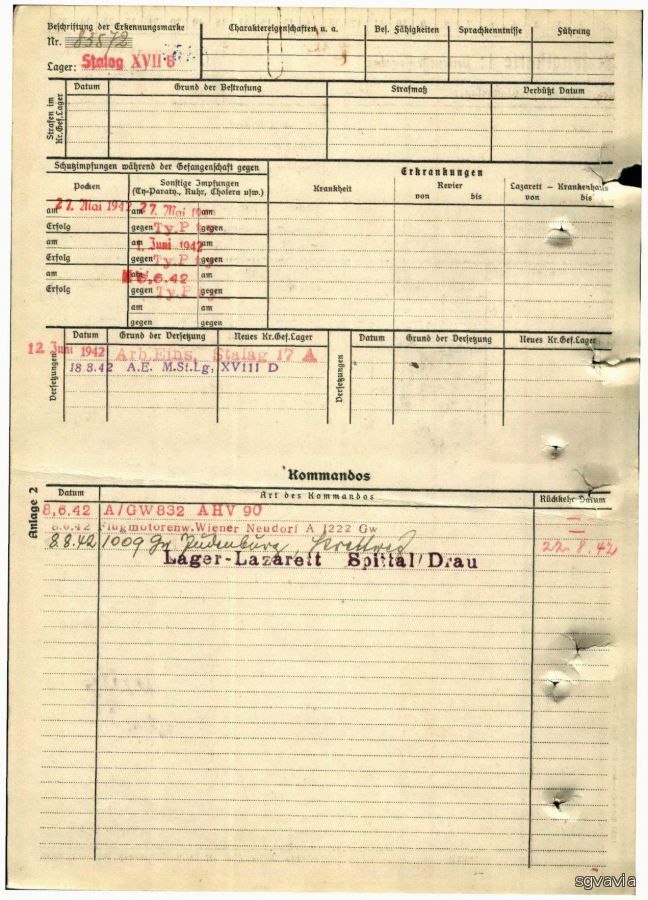 Beschriftung der Erkennungsmarke
Nr. 83872
Lager: Stalag XVII B
Charaktereigenschaften, u. a.
Bes. Fähigkeiten
Sprachkenntnisse
Führung
Strafen im Kr.Gef.Lager
Datum
Grund der Bestrafung
Strafmaß
Verbüßt Datum
Schutzimpfungen während der Gefangenschaft gegen
Pocken
Sonstige Impfungen
(Ty-Paraty., Ruhr, Cholera usw.)
am 27. Mai 1942 am 27. Mai am
Erfolg gegen Ty.P gegen
am am 1. Juni 1942 am
Erfolg gegen Ty.P gegen
am am 8.6.42 am
Erfolg gegen Ty.P gegen
am am
gegen gegen
Erkrankungen
Krankheit
Revier
von bis
Lazarett – Krankenhaus
von bis
Versetzungen
Datum Grund der Versetzung Neues Kr.Gef.Lager
12. Juni 1942 Arb.Eins. Stalag 17 A
18 8.42 A.E. M.St.Lg, XVIII D
Versetzungen
Datum Grund der Versetzung Neues Kr.Gef.Lager
Kommandos
Anlage 2
Datum Art des Kommandos Rückkehr Datum
8,6.42 A/GW832 AHV 90
8.6.42 Flugmotorenw.Wiener Neudorf A 1222 Gw
8.8.42 1009 Gw Judenburg, 22.8.42
Lager-Lazarett Spittal/Drau
sgvavia